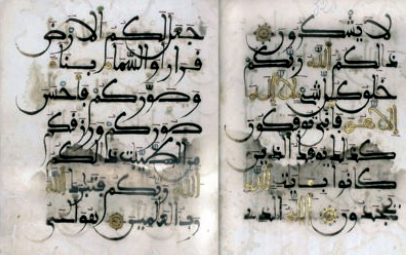 لا يشكرون
ذلكم الله ربكم
خلق كل شىء لا إله
إلا هو فأنى توفكون
كذلك يوفك الذين
كانوا بآيت الله
يجحدون الله الذى
جعل لكم الارض
قرارا والسماء بناء
وصوركم فأحسن
صوركم ورزقكم
من الطيبت ذلكم
الله ربكم فتبرك الله
رب العلمين هو الحى